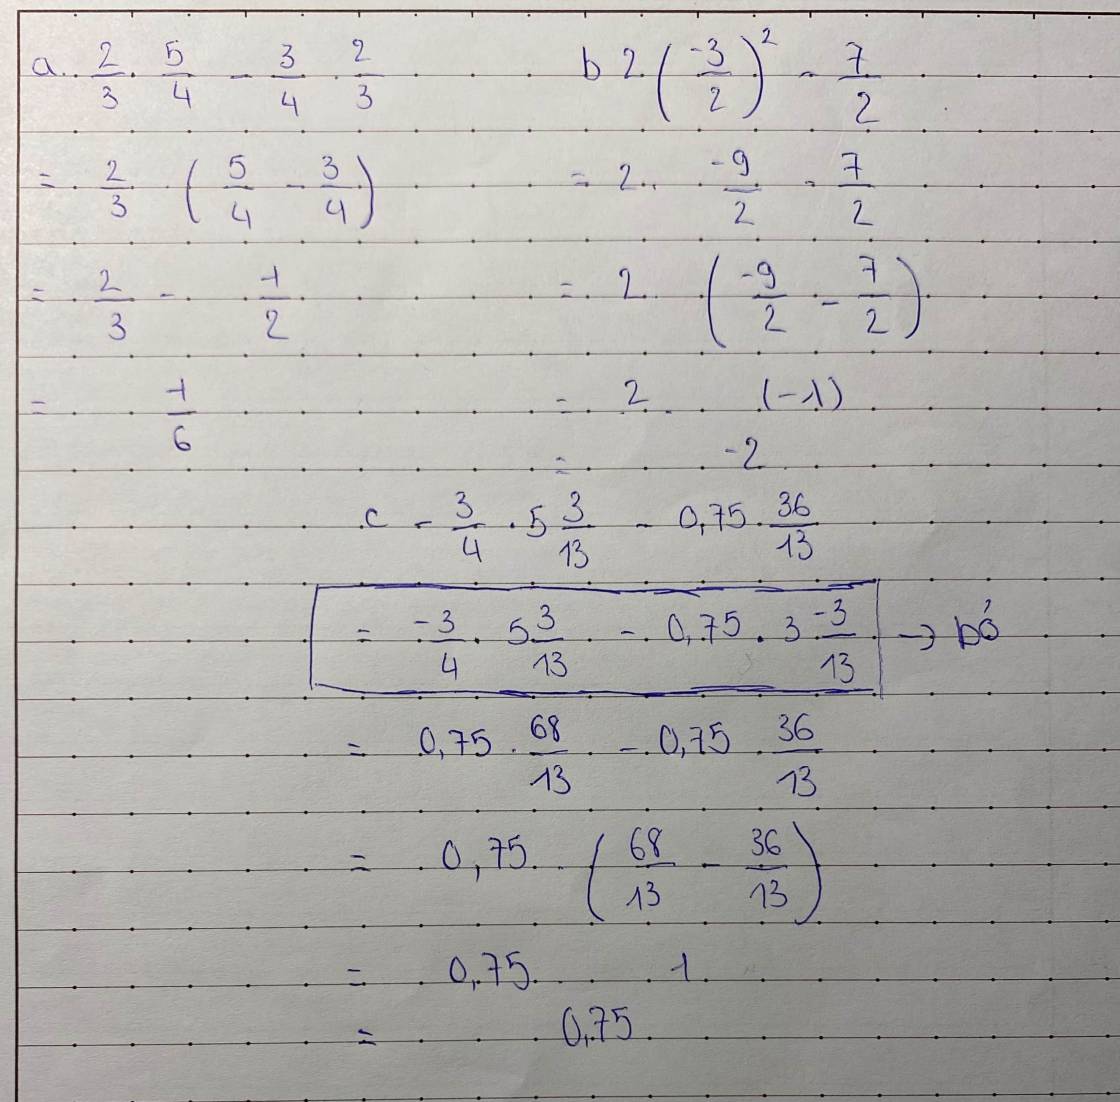 a. 2/3 . 5/4 - 3/4 . 2/3
= 2/3 . (5/4 - 3/4)
= 2/3 - -1/2
= -1/6
b 2. (-3/2)² - 7/2
= 2. -9/2 - 7/2
= 2. (-9/2 - 7/2)
= 2. (-1)
= -2
c - 3/4 . 5 3/13 - 0,75 . 36/13
= -3/4 . 5 3/13 - 0,75 . 3 -3/13 → bỏ
= 0,75 . 68/13 - 0,75 . 36/13
= 0,75 . (68/13 - 36/13)
= 0,75 . 1
= 0,75